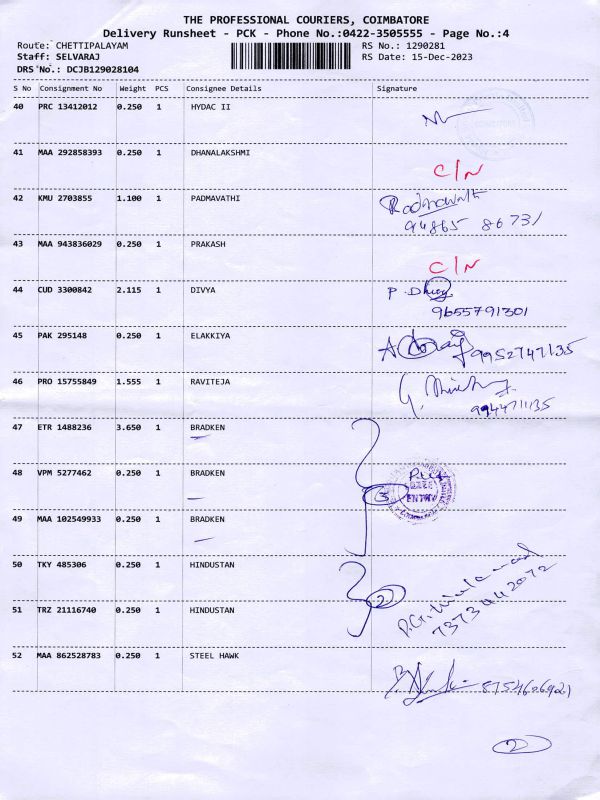 THE PROFESSIONAL COURIERS, COIMBATORE
Delivery Runsheet - PCK - Phone No.:0422-3505555 - Page No.:4
Route: CHETTIPALAYAM RS No.: 1290281
Staff: SELVARAJ RS Date: 15-Dec-2023
DRS No.: DCJB129028104
S No Consignment No Weight PCS Consignee Details Signature
40 PRC 13412012 0.250 1 HYDAC II
41 MAA 292858393 0.250 1 DHANALAKSHMI
C/N
42 KMU 2703855 1.100 1 PADMAVATHI
94865 86731
43 MAA 943836029 0.250 1 PRAKASH
C/N
44 CUD 3300842 2.115 1 DIVYA
9655791301
45 PAK 295148 0.250 1 ELAKKIYA
9952747135
46 PRO 15755849 1.555 1 RAVITEJA
47 ETR 1488236 3.650 1 BRADKEN
48 VPM 5277462 0.250 1 BRADKEN
3
49 MAA 102549933 0.250 1 BRADKEN
50 TKY 485306 0.250 1 HINDUSTAN
2
7373442072
51 TRZ 21116740 0.250 1 HINDUSTAN
52 MAA 862528783 0.250 1 STEEL HAWK
8754606921
2